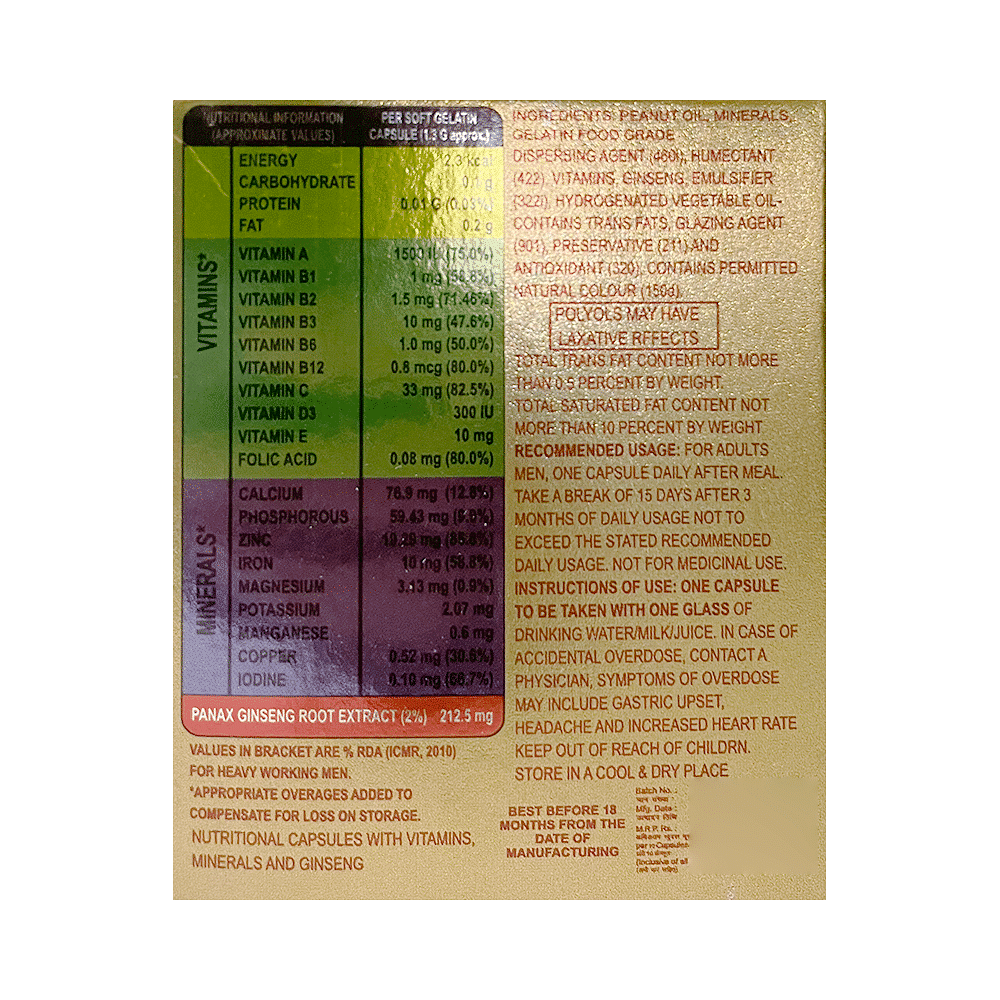 NUTRITIONAL INFORMATION
(APPROXIMATE VALUES)
PER SOFT GELATIN
CAPSULE (1.3 G approx.)
ENERGY 12.3 kcal
CARBOHYDRATE 0.1 g
PROTEIN 0.01 G (0.03%)
FAT 0.2 g
VITAMINS*
VITAMIN A 1500 IU (75.0%)
VITAMIN B1 1 mg (58.8%)
VITAMIN B2 1.5 mg (71.46%)
VITAMIN B3 10 mg (47.6%)
VITAMIN B6 1.0 mg (50.0%)
VITAMIN B12 0.8 mcg (80.0%)
VITAMIN C 33 mg (82.5%)
VITAMIN D3 300 IU
VITAMIN E 10 mg
FOLIC ACID 0.08 mg (80.0%)
MINERALS*
CALCIUM 76.9 mg (12.8%)
PHOSPHOROUS 59.43 mg
ZINC 10.29 mg
IRON 10 mg (58.8%)
MAGNESIUM 3.13 mg (0.9%)
POTASSIUM 2.07 mg
MANGANESE 0.6 mg
COPPER 0.52 mg (30.6%)
IODINE 0.10 mg (66.7%)
PANAX GINSENG ROOT EXTRACT (2%) 212.5 mg
VALUES IN BRACKET ARE % RDA (ICMR, 2010)
FOR HEAVY WORKING MEN.
*APPROPRIATE OVERAGES ADDED TO
COMPENSATE FOR LOSS ON STORAGE.
NUTRITIONAL CAPSULES WITH VITAMINS,
MINERALS AND GINSENG
INGREDIENTS: PEANUT OIL, MINERALS,
GELATIN FOOD GRADE
DISPERSING AGENT (460i), HUMECTANT
(422), VITAMINS, GINSENG, EMULSIFIER
(322i), HYDROGENATED VEGETABLE OIL-
CONTAINS TRANS FATS, GLAZING AGENT
(901), PRESERVATIVE (211) AND
ANTIOXIDANT (320). CONTAINS PERMITTED
NATURAL COLOUR (150d)
POLYOLS MAY HAVE
LAXATIVE RFFECTS
TOTAL TRANS FAT CONTENT NOT MORE
THAN 0.5 PERCENT BY WEIGHT.
TOTAL SATURATED FAT CONTENT NOT
MORE THAN 10 PERCENT BY WEIGHT
RECOMMENDED USAGE: FOR ADULTS
MEN, ONE CAPSULE DAILY AFTER MEAL.
TAKE A BREAK OF 15 DAYS AFTER 3
MONTHS OF DAILY USAGE NOT TO
EXCEED THE STATED RECOMMENDED
DAILY USAGE. NOT FOR MEDICINAL USE.
INSTRUCTIONS OF USE: ONE CAPSULE
TO BE TAKEN WITH ONE GLASS OF
DRINKING WATER/MILK/JUICE. IN CASE OF
ACCIDENTAL OVERDOSE, CONTACT A
PHYSICIAN, SYMPTOMS OF OVERDOSE
MAY INCLUDE GASTRIC UPSET,
HEADACHE AND INCREASED HEART RATE
KEEP OUT OF REACH OF CHILDRN.
STORE IN A COOL & DRY PLACE
BEST BEFORE 18
MONTHS FROM THE
DATE OF
MANUFACTURING
Batch No. :
Mfg. Date :
M.R.P. Rs. :
per 10 Capsules
(Inclusive of all